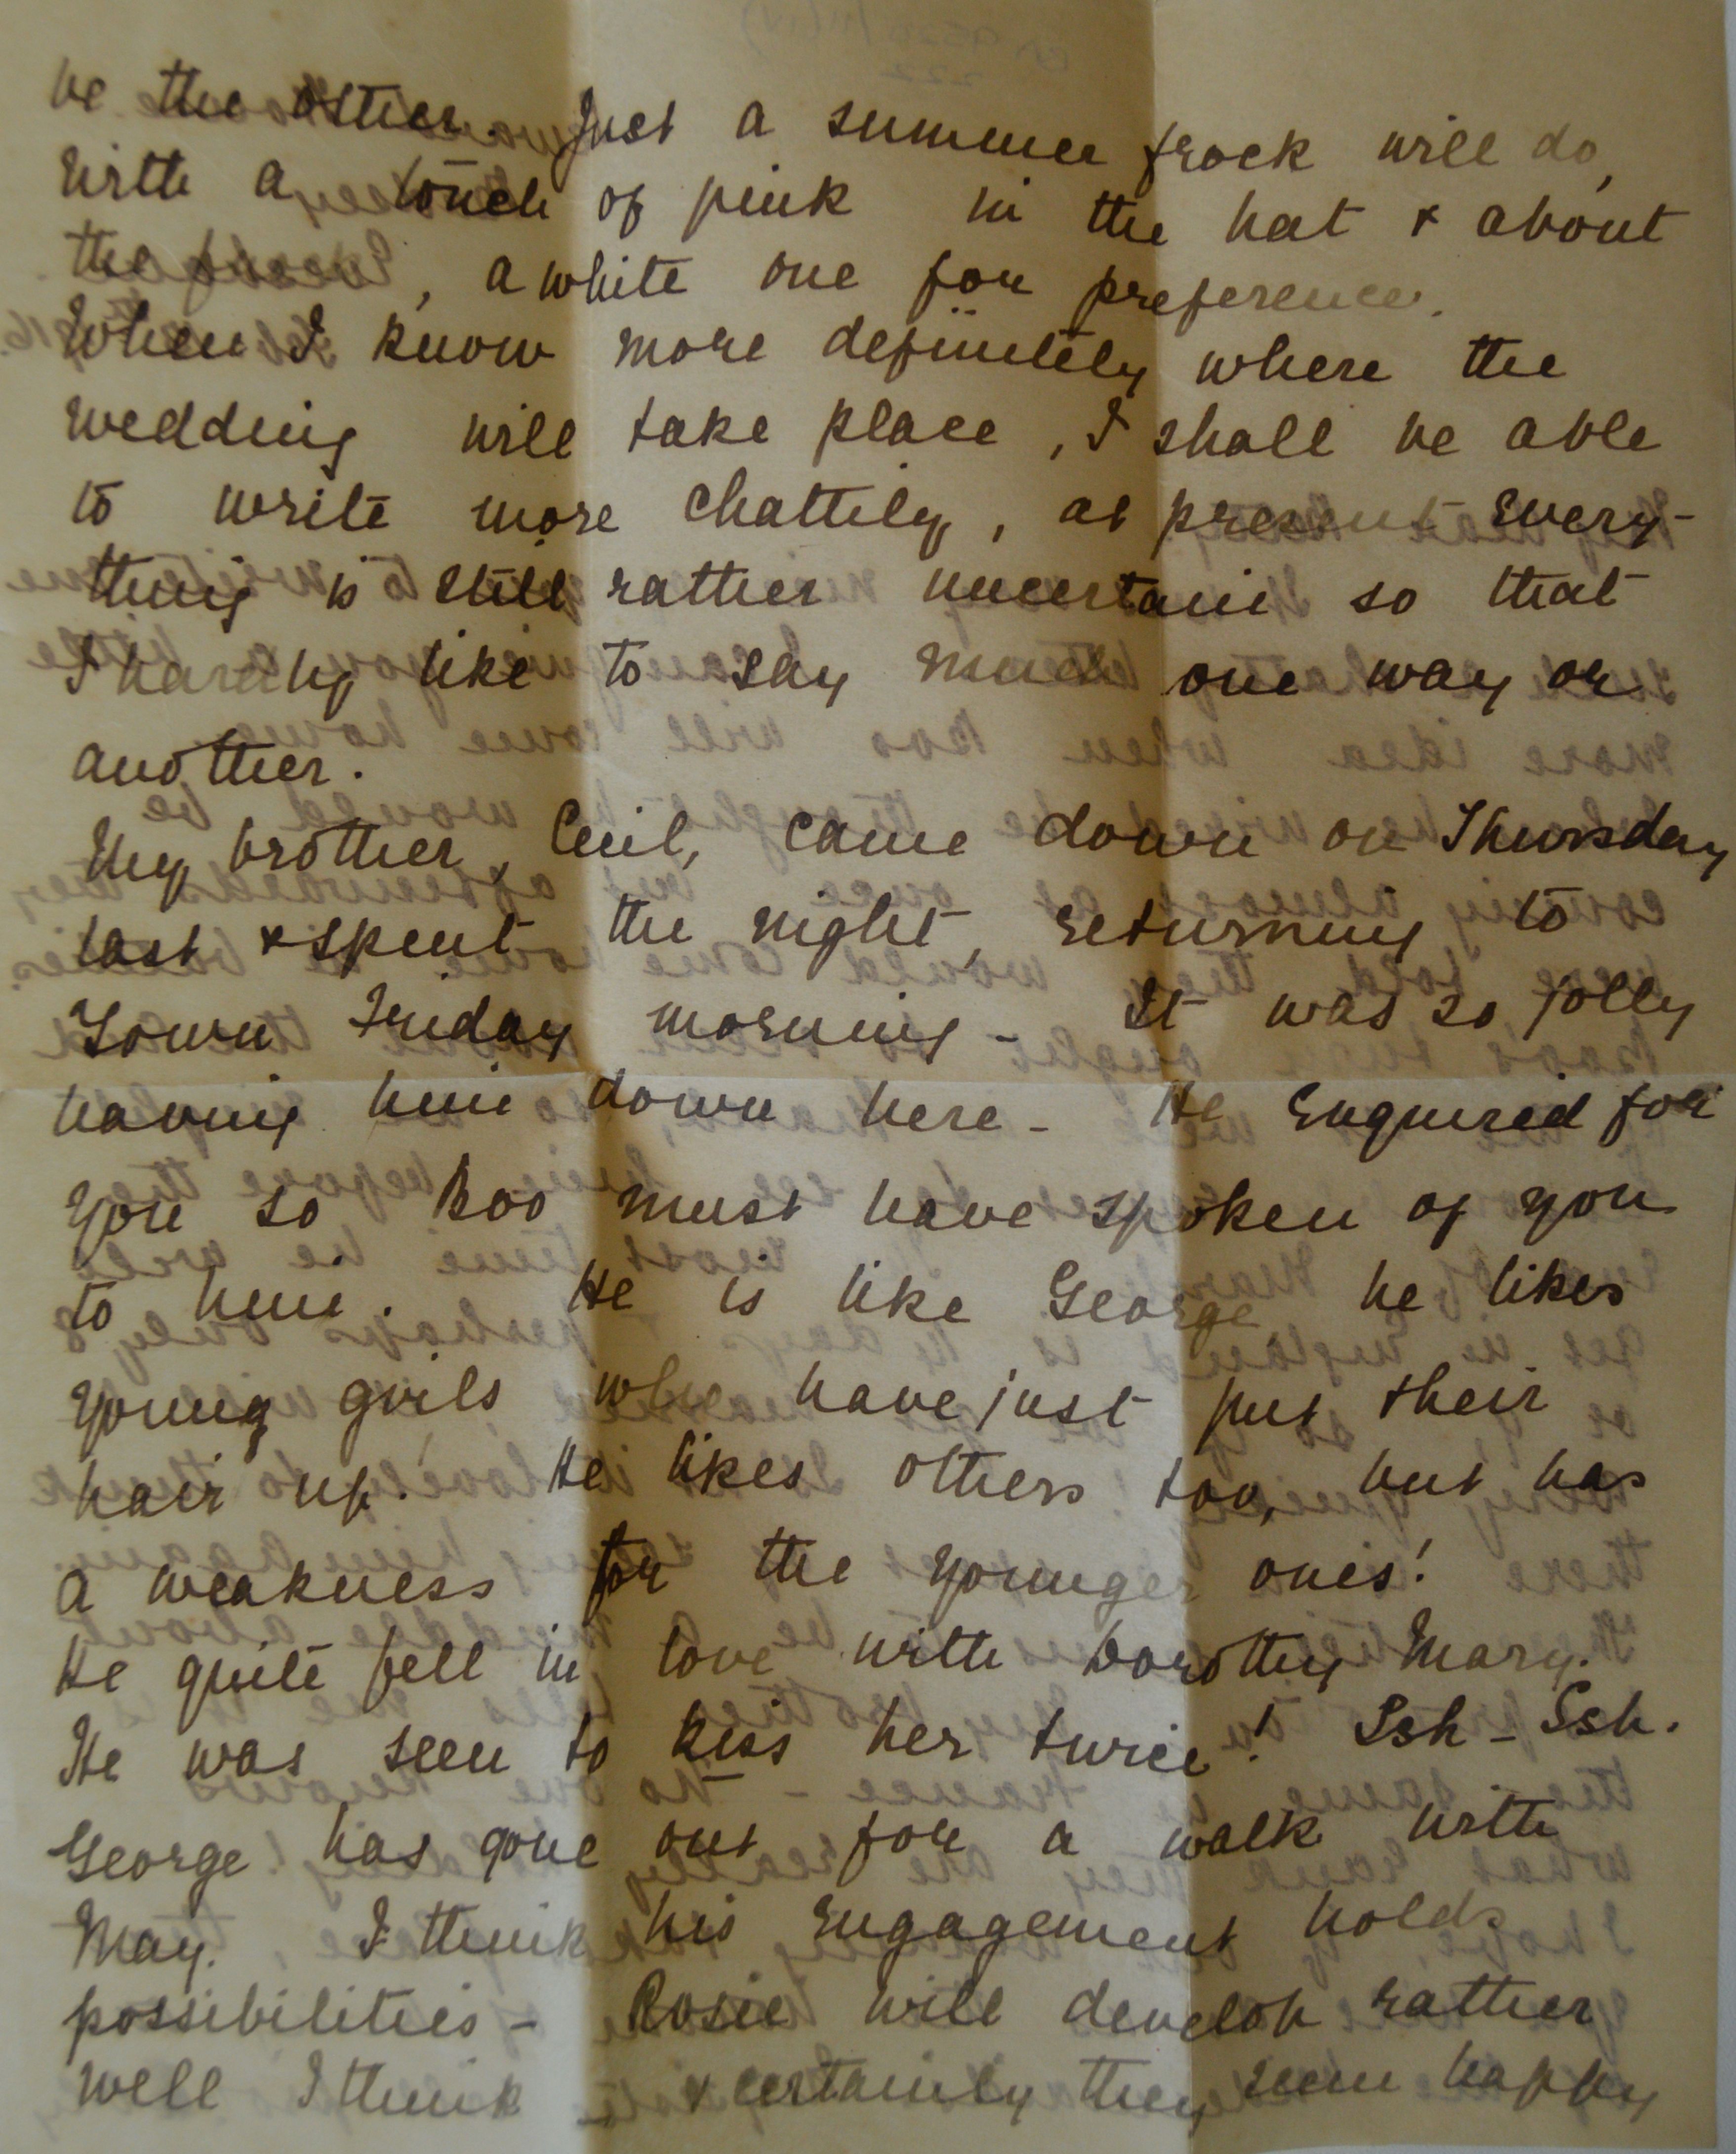 be the other. Just a summer frock will do,
with a touch of pink in the hat & about
the frock, a white one for preference.
When I know more definitely where the
wedding will take place, I shall be able
to write more chattily, at present every-
thing is still rather uncertain so that
I hardly like to say much one way or
another.
My brother, Cecil, came down on Thursday
last & spent the night, returning to
Town Friday morning - It was so jolly
having him down here - He enquired for
you so Boo must have spoken of you
to him. He is like George he likes
young girls who have just put their
hair up. He likes others too, but has
a weakness for the younger ones!
He quite fell in love with Dorothy Mary.
He was seen to kiss her twice! Ssh - Ssh.
George has gone out for a walk with
May. I think his engagement holds
possibilities - Rosie will develop rather
well I think & certainly they seem happy